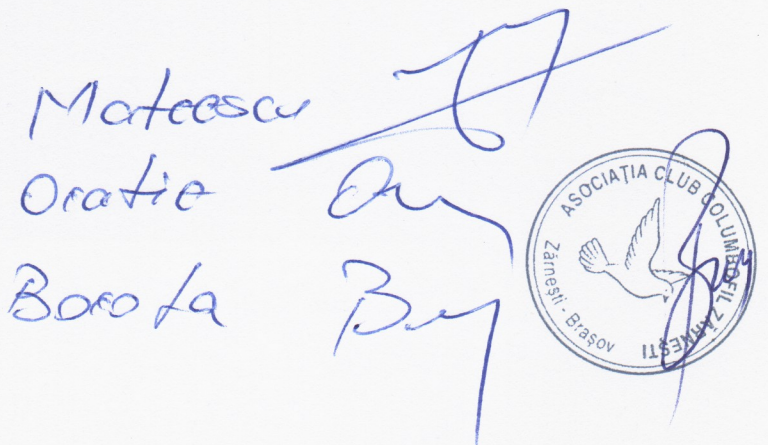 Mateescu
Oratie
Borota
ASOCIAȚIA CLUB COLUMBOFIL ZĂRNEȘTI
Zărnești - Brașov